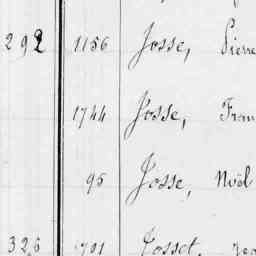 292 1156 Josse, Pierre
1744 Josse, Fran
95 Josse, Noël
326 1701 Josset,